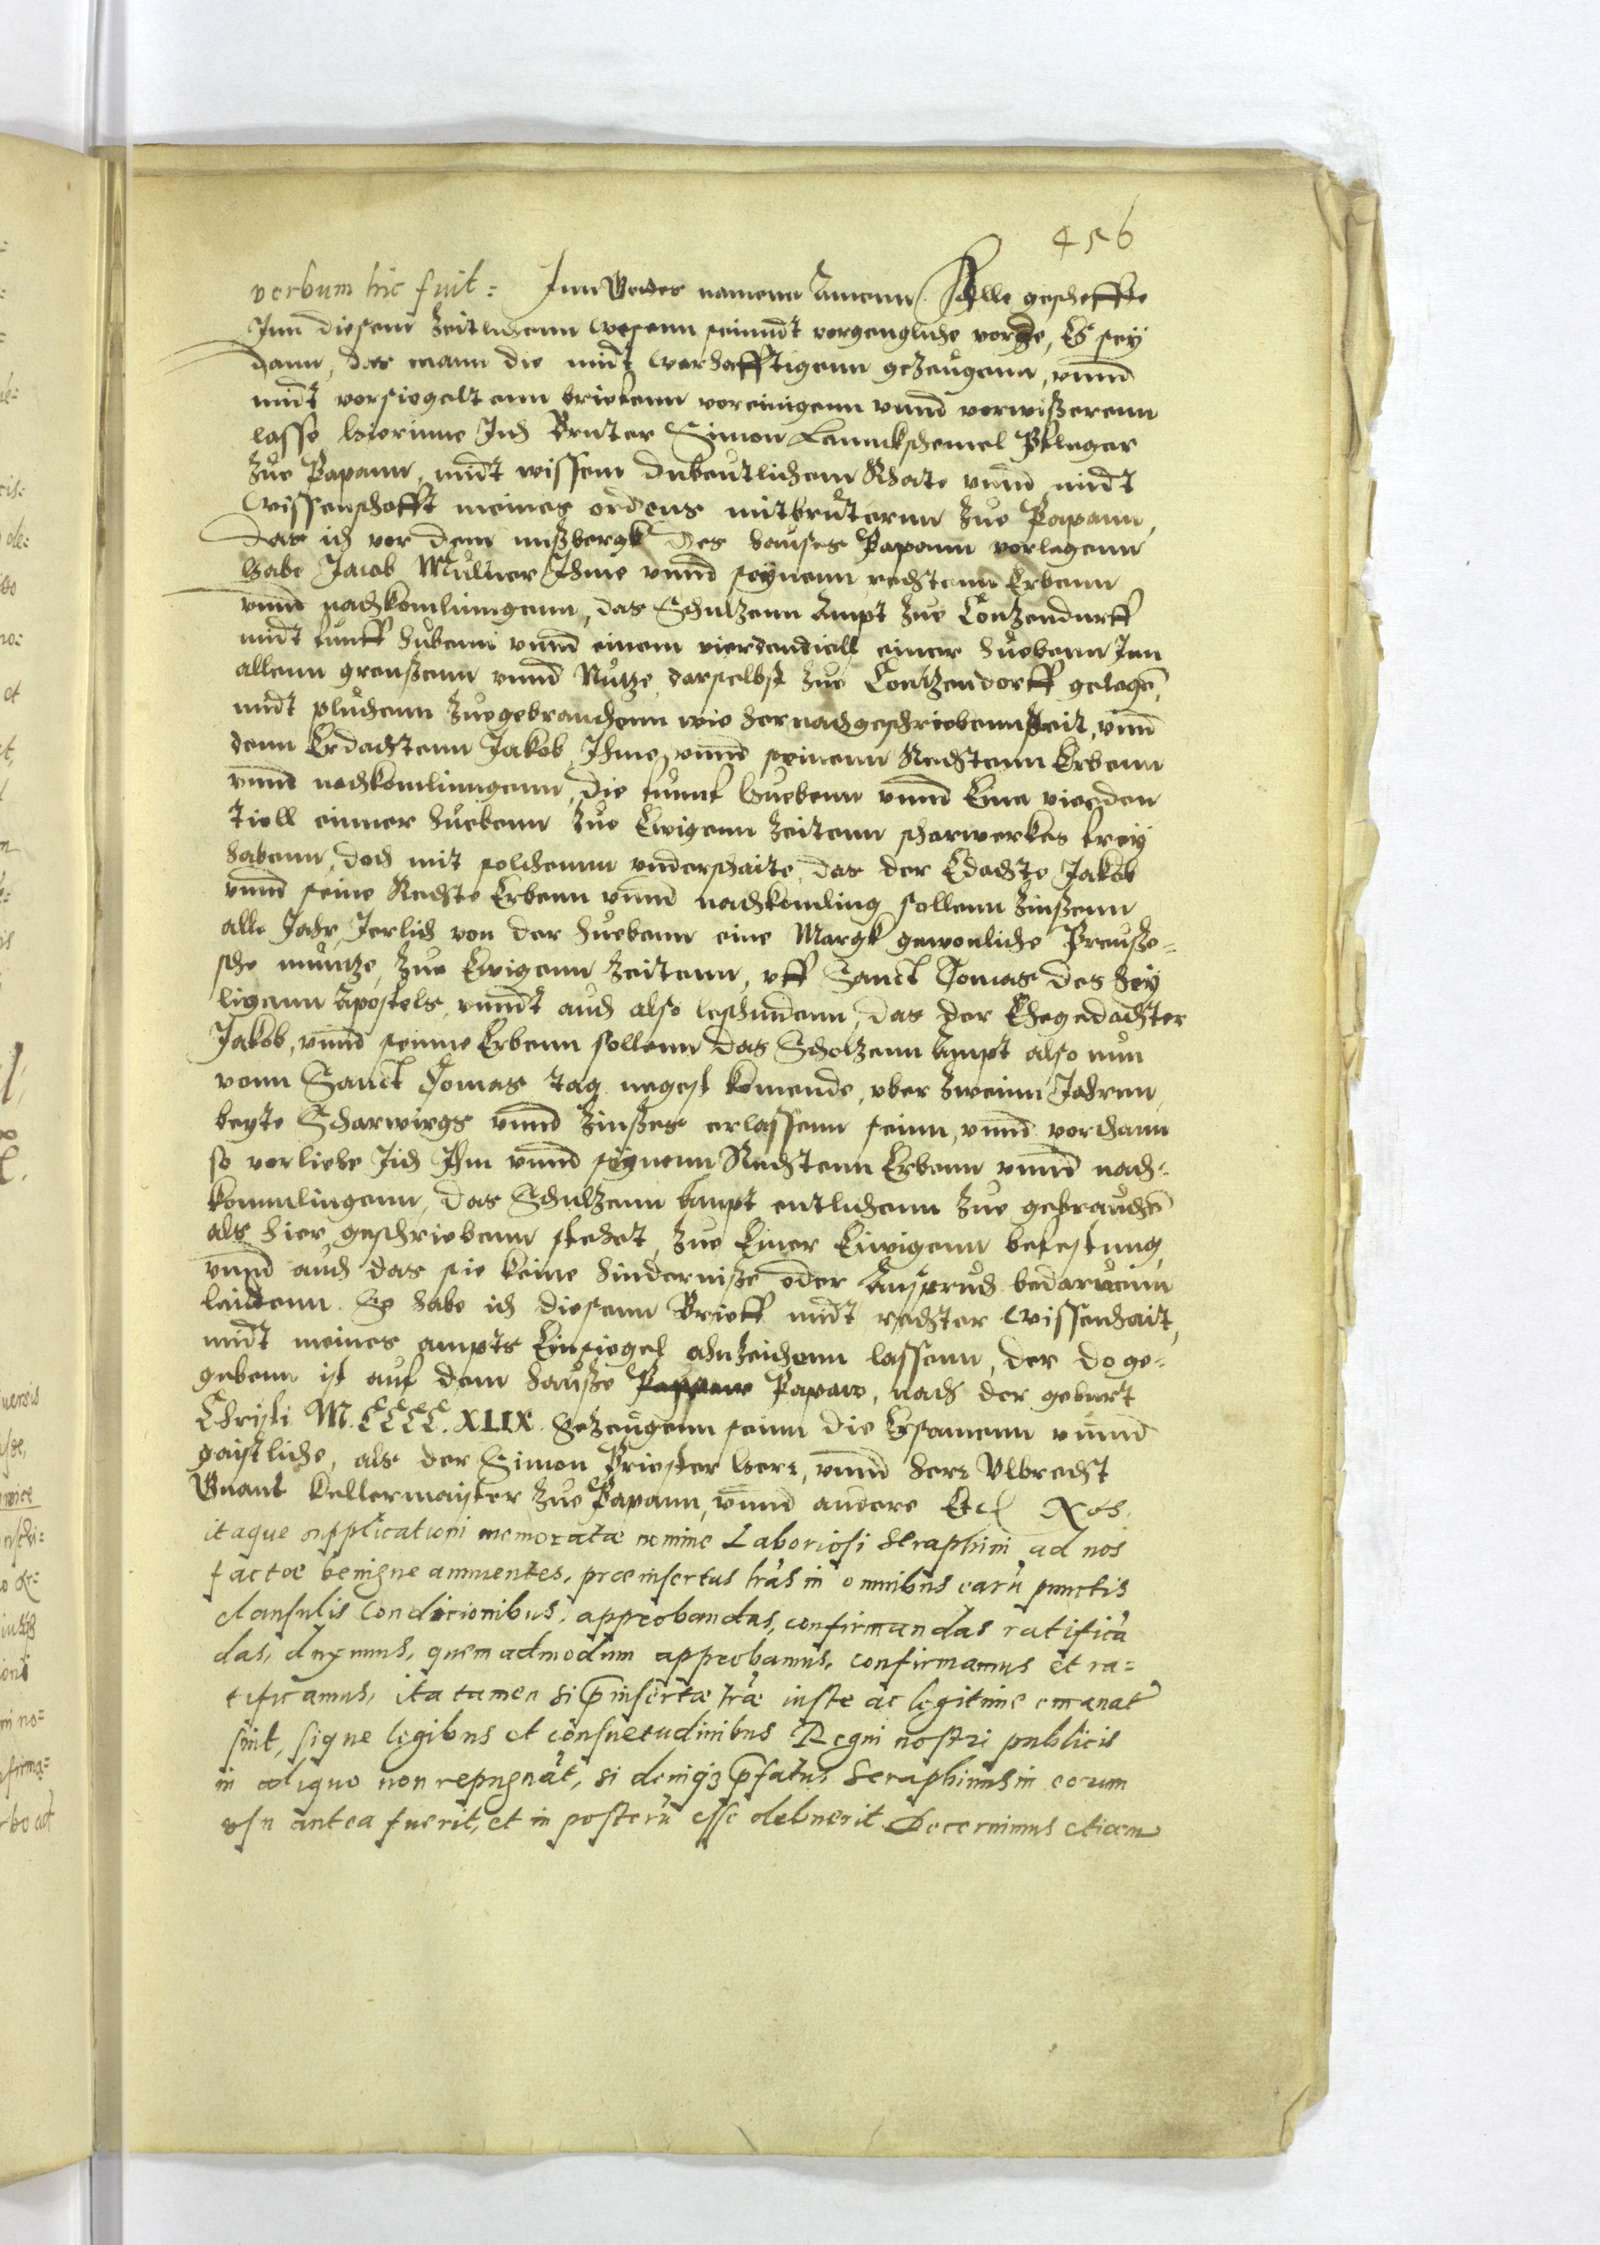 456
verbum hic fuit: Inn Gottes namenn Amenn. Alle gescheffte
Inn diesem Zeitlichenn wesenn seinndt vorgengliche vorde, Es sey
dann, das mann die midt warhafftigenn gezeugenn, vnnd
midt vorsiegeltenn brieffenn voreinigenn vnnd vorwißerenn
lasse Hierinne Ich Bruter Simon Pfleger
Zue Papann, midt wissenn Rhate vnnd midt
wissenschafft meines ordens mitbruternn Zue Papann,
das ich vor dem des hauses Papann vorlegenn
habe Jacob Mulner Ihme vnnd seynenn rechtenn Erbenn
vnnd nachkomlinngenn, das Schultzenn Ampt Zue Contzendorff
midt funff hubenn vnnd einem vierdentiell einer huebenn Inn
allenn grenßenn vnnd Nutze, darselbst Zue Contzendorff gelegē,
midt Zuegebrauchenn wie hernachgeschriebenn steit, vnnd
denn Erdachtenn Jakob, Ihme, vnnd seinenn Rechtenn Erbenn
vnnd nachkomlinngenn, die funnf huebenn vnnd Einn vierden
tiell einner huebenn Zue Ewigenn Zeitenn scharwerkes frey
habenn, doch mit solchennn vnderschaite, das der Edachte Jakob
vnnd seine Rechte Erbenn vnnd nachkomling sollenn Zinßenn
alle Jahr Jerlich von der huebenn eine Margk gewonliche Preuße=
sche muntze, Zue Ewigenn Zeitenn, vff Sanct Tomas des hey
ligenn Apostels, vnndt auch also bescheidenn, das der Ehegedachter
Jakob, vnnd seinne Erbenn sollenn das Scholzenn Ampt also nun
vonn Sanct Tomas tag negest komende, vber Zweinn Jahrenn,
beyte Scharwirgs vnnd Zinßes erlassenn seinn, vnnd vordann
so vorliehe Ich Ihm vnnd seynenn Rechtenn Erbenn vnnd nach=
kommlingenn, das Schultzenn Ampt entlichenn Zue gebrauchē
als hier geschriebenn stehet, Zue Einer Eiwigenn befestung
vnnd auch das sie keine hinderniße oder Anspruch bedarvenn
leidenn. So habe ich diesenn Brieff midt rechter wissenhait,
midt meines ampts Einsiegel ahnzeichenn lassenn, der do ge=
gebenn ist auf dem hauße Papaw, nach der geburt
Christi M.CCCC.XLIX. Gezeugenn seinn die Ersamenn vnnd
gaistliche, als der Simon Priester herr, vnnd herr Vlbrecht
Kellermaister Zue Papann, vnnd andere Etc. Nos
itaque supplicationi memoratæ nomine Laboriosi Seraphini ad nos
factæ benigne annuentes, præinsertas lrãs in omnibus earũ punctis
clausulis condicionibus, approbandas, confirmandas ratificã
das, duximus, quemadmodum approbamus, confirmamus et ra=
tificamus, ita tamen si p̄insertæ lræ iuste ac legitime emanatæ
sint, sique legibus et consuetudinibus Regni nostri publicis
in aliquo non repugnãt, si deniq3 p̄fatus Seraphinus in eorum
usu antea fuerit, et in posterũ esse debuerit. Decernimus etiam